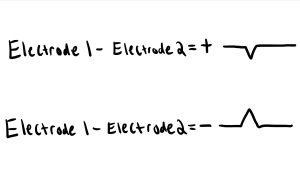 Electrode 1 - Electrode 2 = +
Electrode 1 - Electrode 2 = -